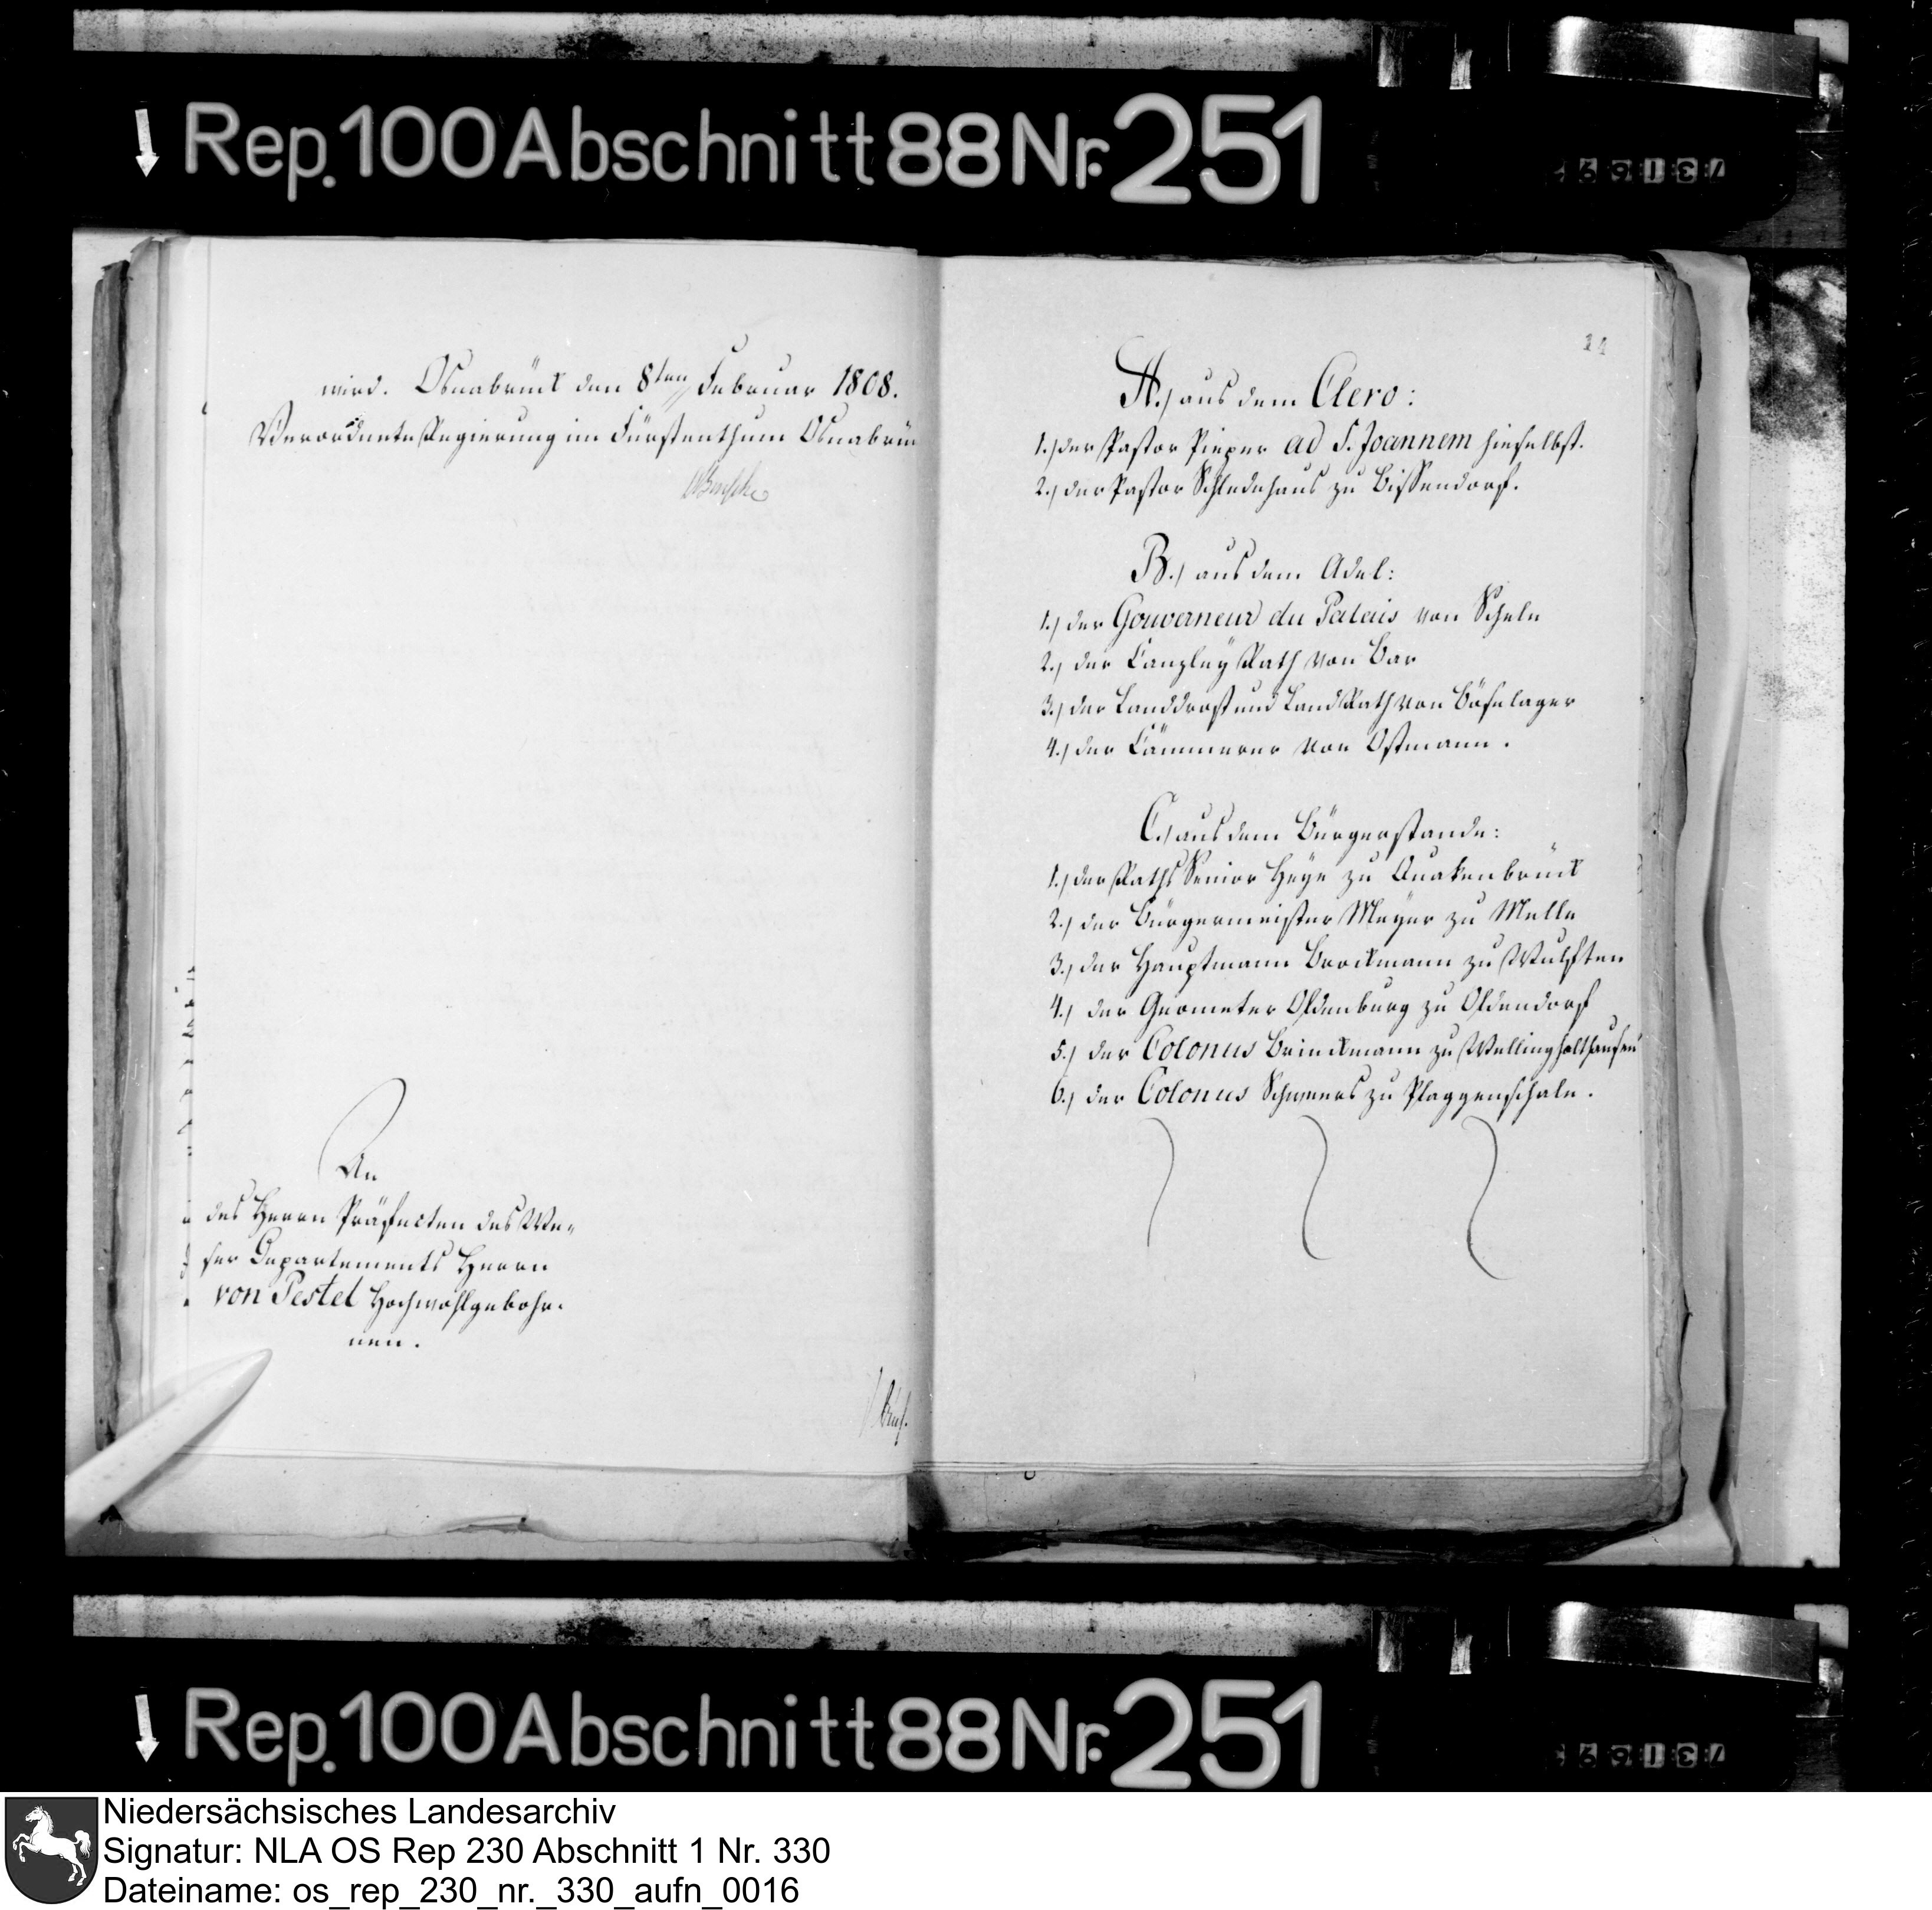 Rep. 100 Abschnitt 88 Nr. 251
wird. Osnabrück den 8ten Februar 1808.
Verordnete Regierung im Fürstenthum Osnabrü
An
des Herrn Präfecten des We-
ser Departements Herrn
von Pestel Hochwohlgebohr-
nen.
A.) aus dem Clero:
1.) der Pastor Pieper ad S. Joannem hieselbst.
2.) der Pastor Schledehaus zu Bissendorf.
B.) aus dem Adel:
1.) der Gouverneur du Palais von Schele
2.) der Canzley Rath von Bar
3.) der Landdrost und Land Rath von Böselager
4.) der Cämmerer von Ostmann.
C.) aus dem Bürgerstande:
1.) der Raths Senior Heye zu Quakenbrück
2.) der Bürgermeister Meyer zu Melle
3.) der Hauptmann Brockmann zu Wulften
4.) der Geometer Oldenburg zu Oldendorf
5.) der Colonus Brinckmann zu Wellingholthausen
6.) der Colonus Schweers zu Plaggenschale.
Rep. 100 Abschnitt 88 Nr. 251
Niedersächsisches Landesarchiv
Signatur: NLA OS Rep 230 Abschnitt 1 Nr. 330
Dateiname: os_rep_230_nr._330_aufn_0016